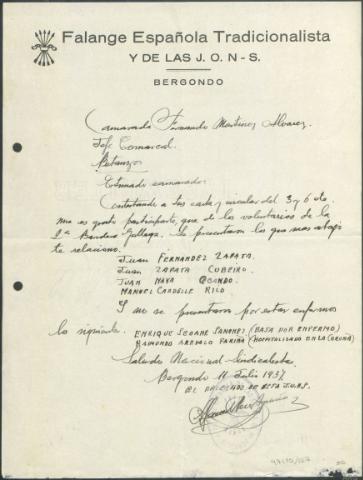 Falange Española Tradicionalista
Y DE LAS J. O. N - S.
BERGONDO
Camarada Fernando Martinez Alvarez.
Jefe Comarcal
Betanzos
Estimado camarada:
Contestando a tus carta y circular del 3 y 6 de
me es grato participarte, que de los voluntarios de la
1ª Bandera Gallega. Se presentaron los que mas abajo
te relaciono.
JUAN FERNANDEZ ZAPATA
JUAN ZAPATA CUBEIRO
JUAN NAYA OBANDO
MANUEL CARDELLE RILO
Y no se presentaron por estar enfermos
los siguientes. ENRIQUE SEOANE SANCHEZ (BAJA POR ENFERMO)
RAIMUNDO AREVALO FARIÑA (HOSPITALIZADO EN LA CORUÑA)
Saludo Nacional-Sindicalista
Bergondo 11 Julio 1937
EL DE ESTA J.O.N.S.